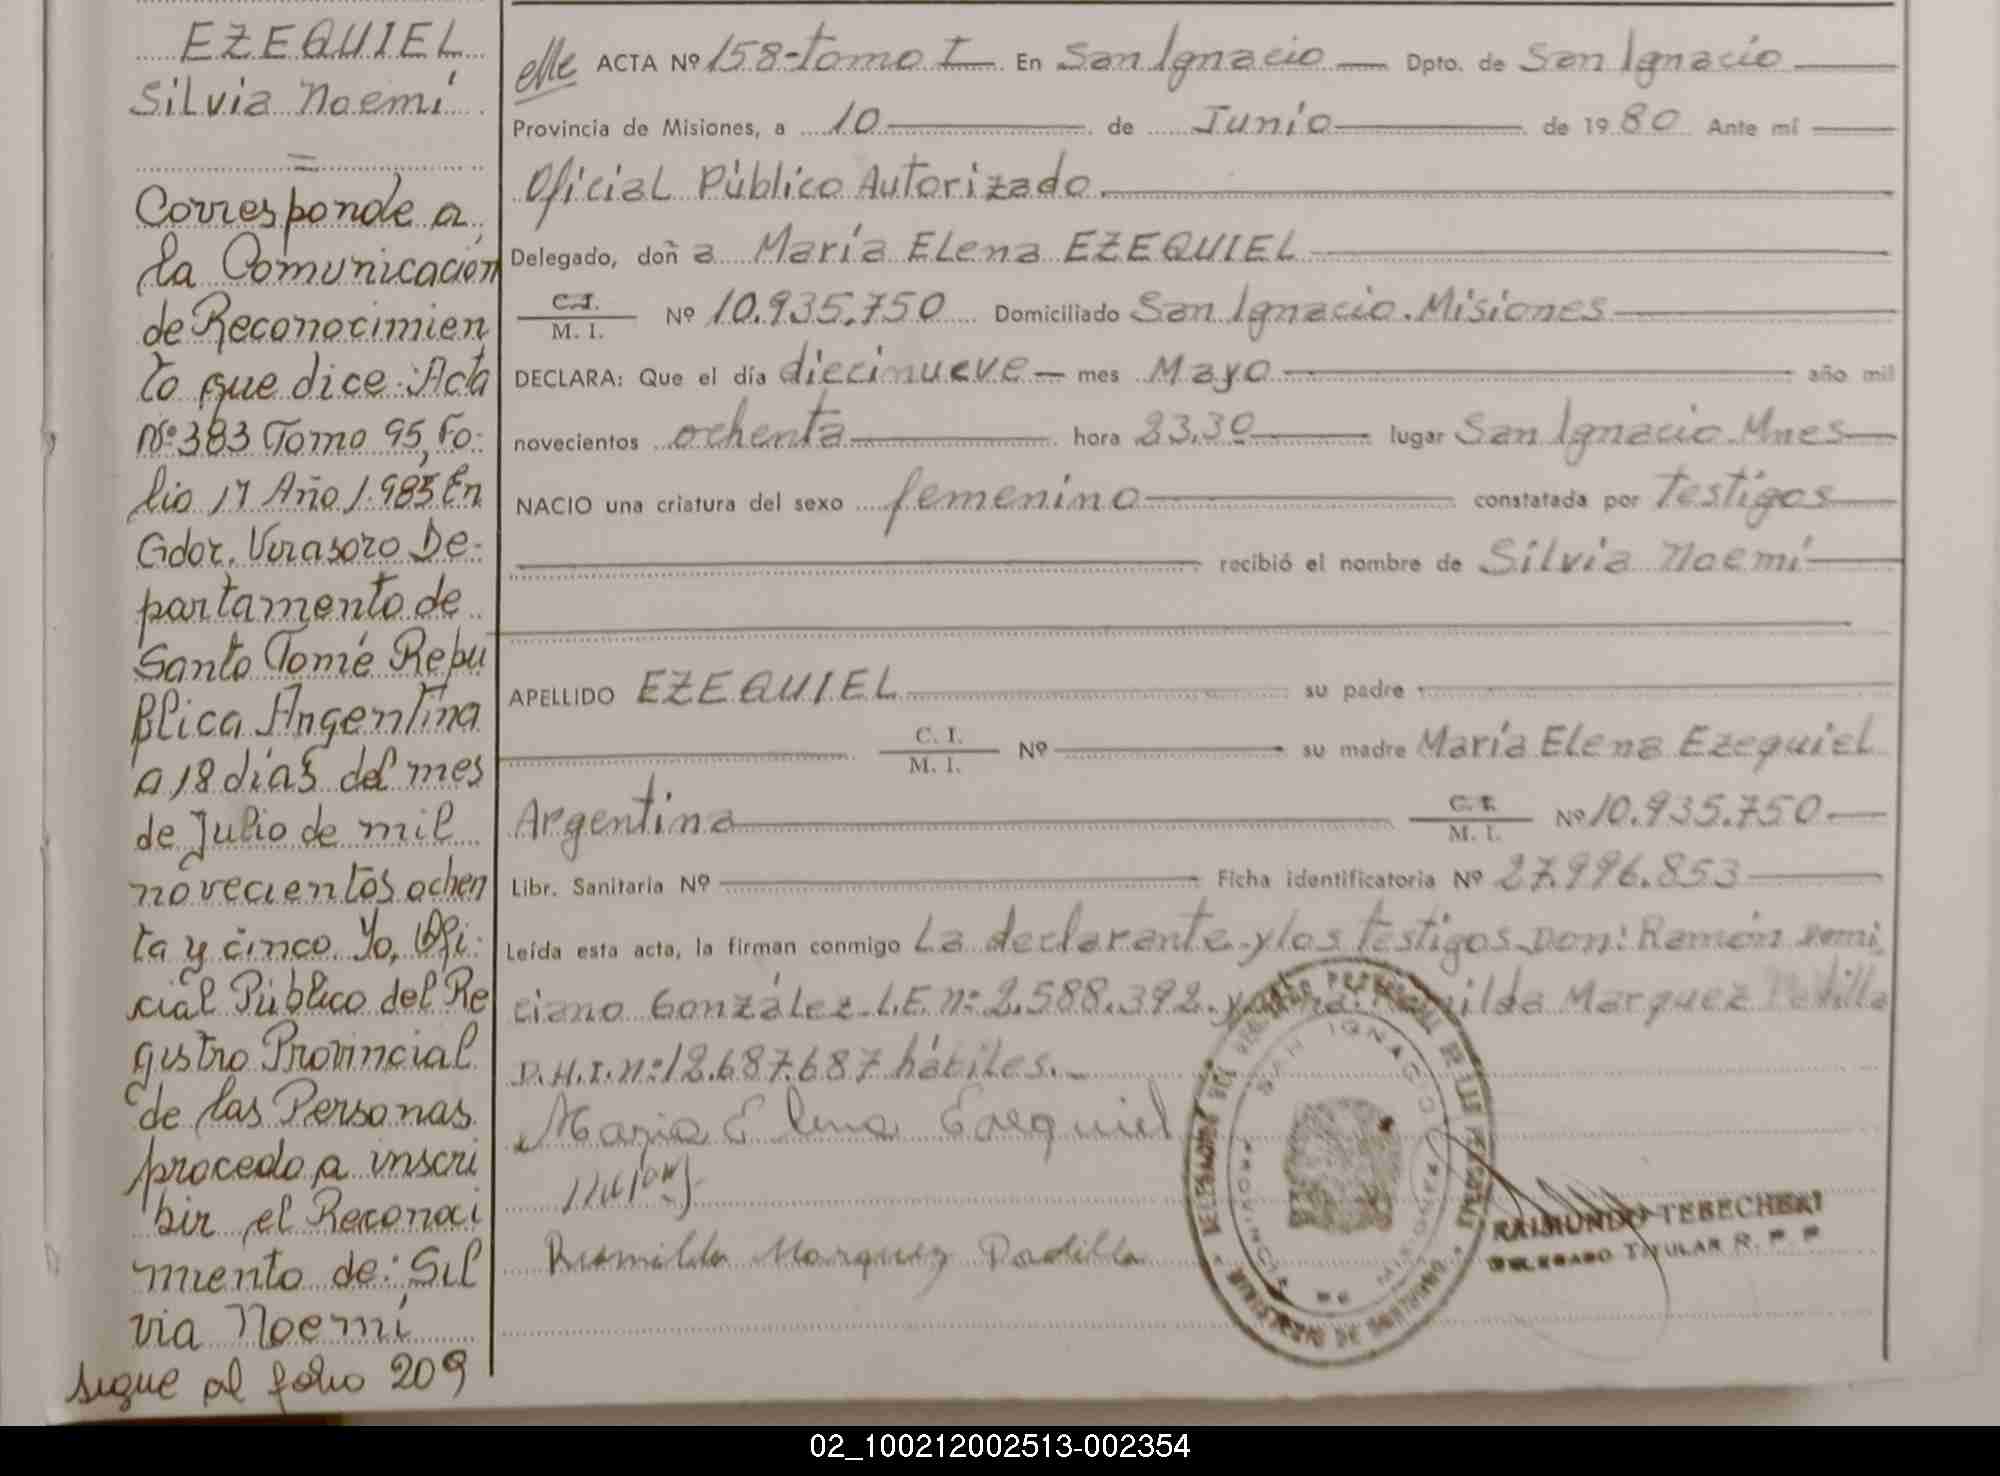 EZEQUIEL
Silvia Noemí
=
Corresponde a
la Comunicación
de Reconocimien
to que dice: Acta
Nº 383 Tomo 95, Fo-
lio 17 Año 1.985 En
Gdor. Virasoro De-
partamento de
Santo Tomé Repu
Blica Argentina
a 18 días del mes
de Julio de mil
novecientos ochen
ta y cinco. Yo, Ofi-
cial Público del Re
gistro Provincial
de las Personas
procedo a inscri
bir el Reconoci
miento de: Sil
via Noemí
sigue al folio 209
ACTA Nº 158-tomo I En San Ignacio Dpto. de San Ignacio
Provincia de Misiones, a 10 de Junio de 1980 Ante mí
Oficial Público Autorizado.
Delegado, doña María Elena EZEQUIEL
C.I. / M. I. Nº 10.935.750 Domiciliado San Ignacio. Misiones
DECLARA: Que el día diecinueve mes Mayo año mil
novecientos ochenta hora 23,30 lugar San Ignacio. Mnes
NACIO una criatura del sexo femenino constatada por testigos
recibió el nombre de Silvia Noemí
APELLIDO EZEQUIEL su padre
C. I. / M. I. Nº su madre María Elena Ezequiel
Argentina C. I. / M. I. Nº 10.935.750
Libr. Sanitaria Nº Ficha identificatoria Nº 27.996.853
Leída esta acta, la firman conmigo La declarante y los testigos Don: Ramón Domi
ciano González L.E. nº 2.588.392. y Marquez Padilla
D.N.I. nº 12.687.687 hábiles.
Maria Elena Ezequiel
Marquez Padilla
SAN IGNACIO
PROVINCIA DE MISIONES
MINISTERIO DE GOBIERNO
RAIMUNDO TEBECHERI
DELEGADO TITULAR R. P. P.
02_100212002513-002354